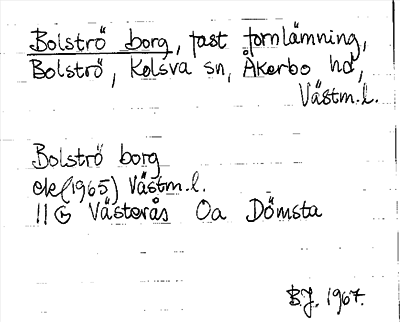 Bolströ borg, fast fornlämning,
Bolströ, Kolsva sn, Åkerbo hd,
Västm.l.
Bolströ borg
ek(1965) Västm.l.
11 G Västerås 0a Dömsta
B.J. 1967.